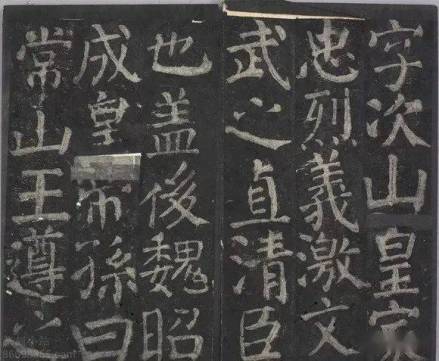 字次山皇家
忠烈義激文
武之直清臣
也盖後魏昭
成皇帝孫曰
常山王遵之